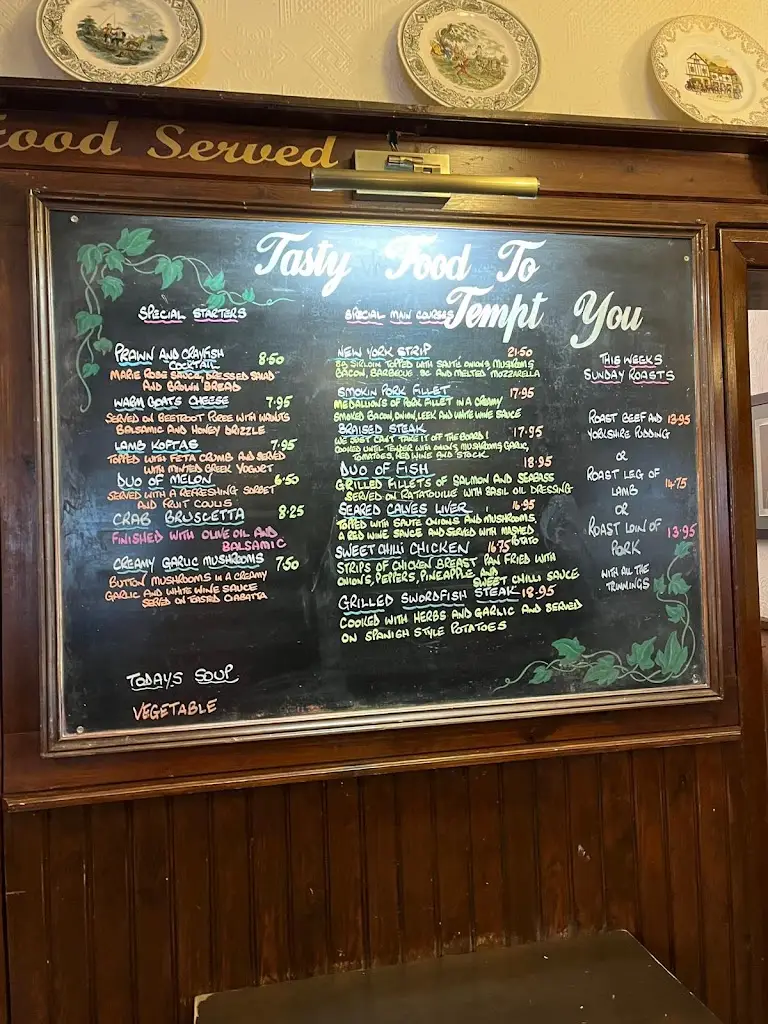 Food Served
Tasty Food To
Tempt You
SPECIAL STARTERS
PRAWN AND CRAYFISH 8.50
COCKTAIL
MARIE ROSE SAUCE, DRESSED SALAD
AND BROWN BREAD
WARM GOATS CHEESE 7.95
SERVED ON BEETROOT PUREE WITH WALNUTS
BALSAMIC AND HONEY DRIZZLE
LAMB KOFTAS 7.95
TOPPED WITH FETA CRUMB AND SERVED
WITH MINTED GREEK YOGURT
DUO OF MELON 6.50
SERVED WITH A REFRESHING SORBET
AND FRUIT COULIS
CRAB BRUSCETTA 8.25
FINISHED WITH OLIVE OIL AND
BALSAMIC
CREAMY GARLIC MUSHROOMS 7.50
BUTTON MUSHROOMS IN A CREAMY
GARLIC AND WHITE WINE SAUCE
SERVED ON TOASTED CIABATTA
TODAYS SOUP
VEGETABLE
SPECIAL MAIN COURSES
NEW YORK STRIP 21.50
8oz SIRLOIN TOPPED WITH SAUTE ONIONS, MUSHROOMS
BACON, BARBEQUE SC AND MELTED MOZZARELLA
SMOKIN PORK FILLET 17.95
MEDALLIONS OF PORK FILLET IN A CREAMY
SMOKED BACON, ONION, LEEK AND WHITE WINE SAUCE
BRAISED STEAK 17.95
WE JUST CAN'T TAKE IT OFF THE BOARD!
COOKED UNTIL TENDER WITH ONIONS, MUSHROOMS, GARLIC,
TOMATOES, RED WINE AND STOCK
DUO OF FISH 18.95
GRILLED FILLETS OF SALMON AND SEABASS
SERVED ON RATATOUILLE WITH BASIL OIL DRESSING
SEARED CALVES LIVER 16.95
TOPPED WITH SAUTE ONIONS AND MUSHROOMS,
A RED WINE SAUCE AND SERVED WITH MASHED
POTATO
SWEET CHILLI CHICKEN 16.75
STRIPS OF CHICKEN BREAST PAN FRIED WITH
ONIONS, PEPPERS, PINEAPPLE AND
SWEET CHILLI SAUCE
GRILLED SWORDFISH STEAK 18.95
COOKED WITH HERBS AND GARLIC AND SERVED
ON SPANISH STYLE POTATOES
THIS WEEKS
SUNDAY ROASTS
ROAST BEEF AND 13.95
YORKSHIRE PUDDING
OR
ROAST LEG OF 14.75
LAMB
OR
ROAST LOIN OF 13.95
PORK
WITH ALL THE
TRIMMINGS